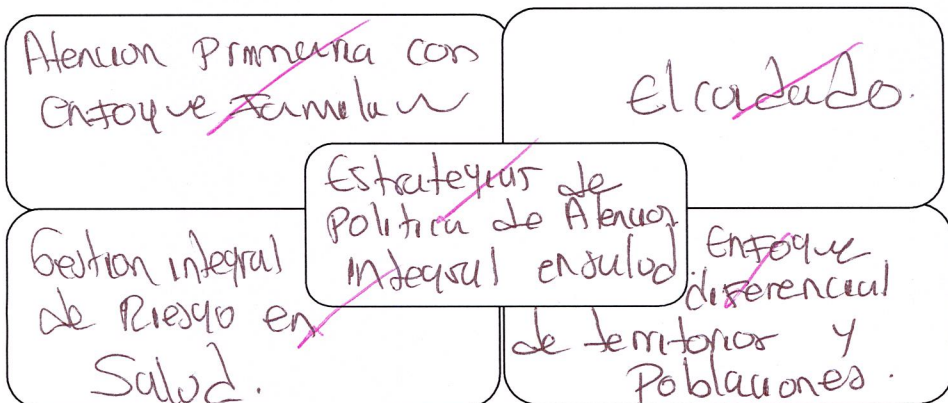 Atencion Primaria con
Enfoque Familiar
El cuidado.
Estrategias de
Politica de Atencion
integral en salud
Gestion integral
de Riesgo en
Salud.
Enfoque
diferencial
de territorios y
Poblaciones.